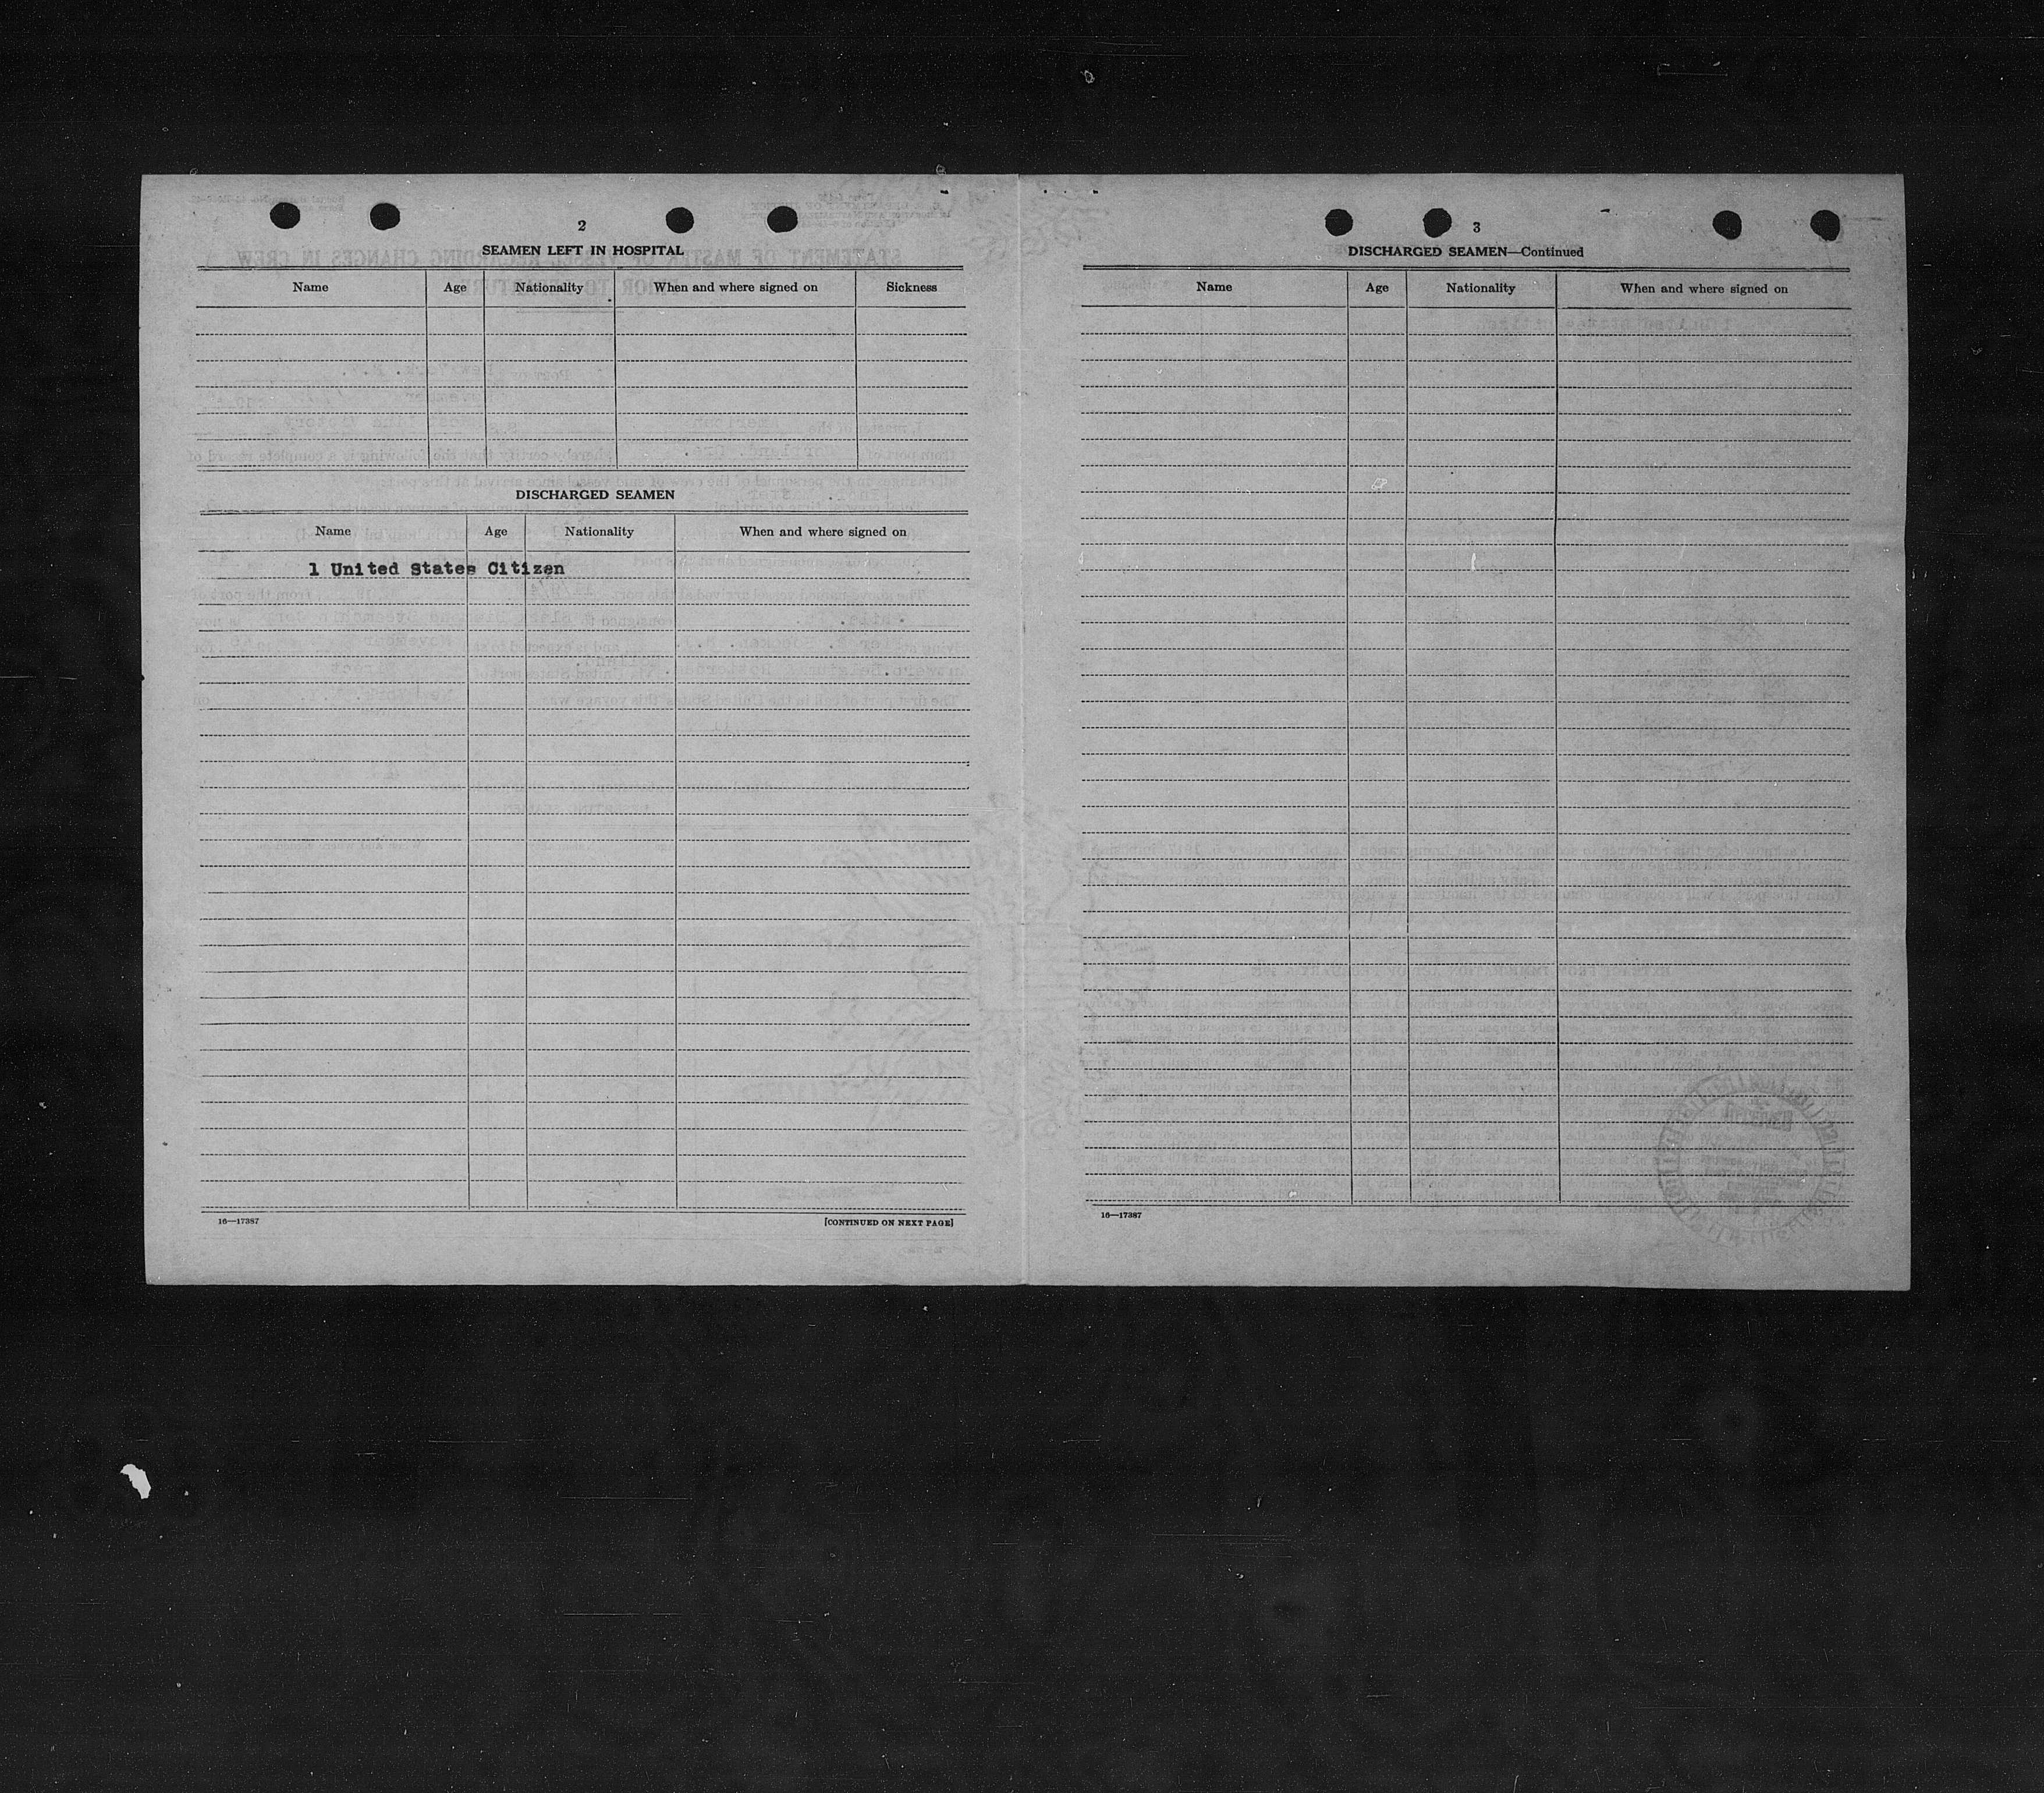 2
SEAMEN LEFT IN HOSPITAL
Name Age Nationality When and where signed on Sickness
DISCHARGED SEAMEN
Name Age Nationality When and where signed on
1 United States Citizen
16—17387 [CONTINUED ON NEXT PAGE]
3
DISCHARGED SEAMEN—Continued
Name Age Nationality When and where signed on
16—17387